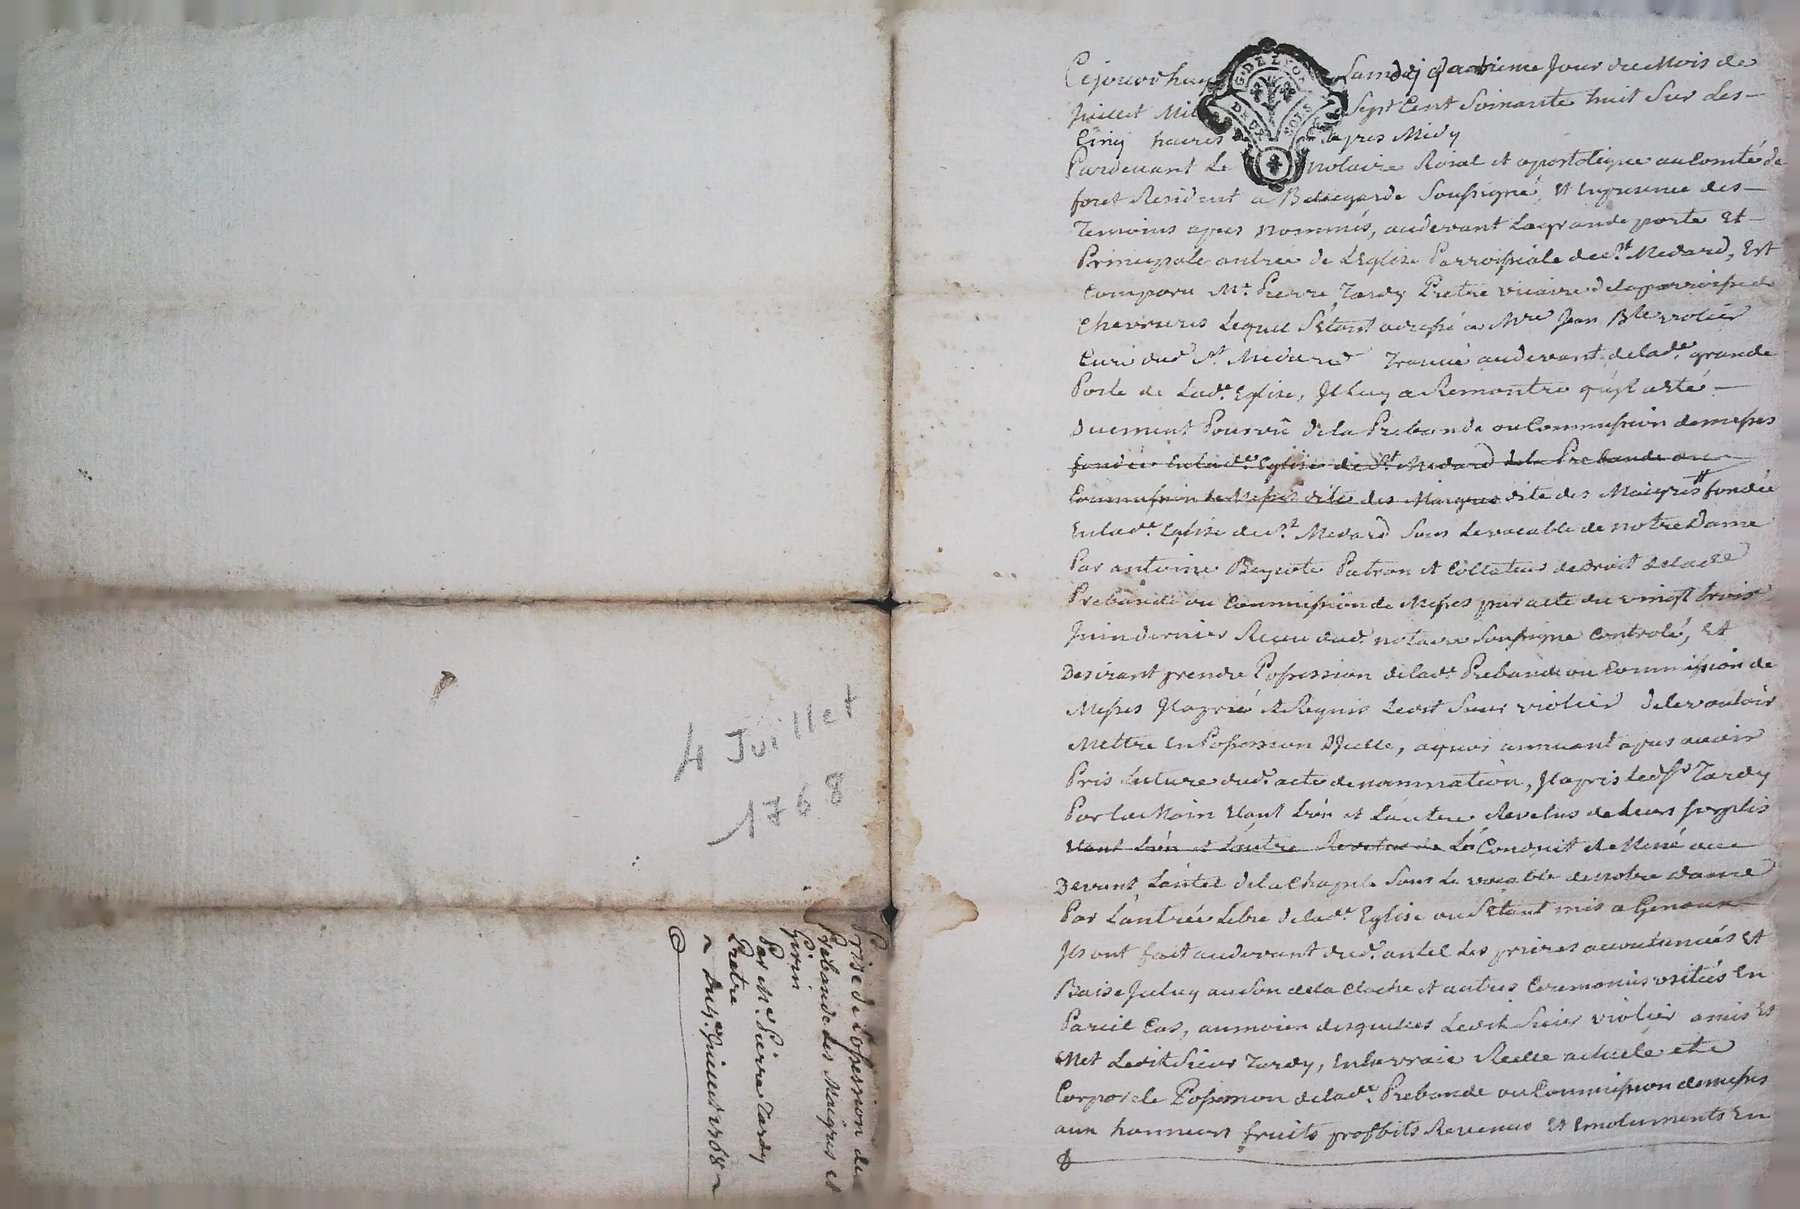 4 Juillet
1768
Prise de Possession de
Prebande des Maigres et
Girin
Par Mre Pierre Tardy
Pretre
Du 4e Juillet 1768
G. DE LYON
DEUX SOLS
Cejourdhuy Samdy quatrieme Jour du Mois de
Juillet Mil Sept Cent Soixante huit Sur Les
Cinq heures apres Midy
Pardevant Le notaire Roial et apostolique au Comté de
forest Resident a Bellegarde Soussigné, et En presence des
Temoins apres nommés, audevant La grande porte Et
Principale antrée de L'Eglise Parroissiale de St. Medard, Est
Comparu Mre Pierre Tardy Pretre vicaire de la parroisse de
Chevrieres Lequel S'Etant adressé a Mre Jean Bte violier
Curé dud. St Medard Trouvé audevant de lade. grande
Porte de Lade. Eglise, Il Luy a Remontré qu'il a Eté
Duement Pourvû de la Prebande ou Commission de messes
fondée En lade. Eglise de St Medard de la Prebande ou
Commission de Messes dite des Maigres dite des Maigres fondée
En lade. Eglise de St. Medard Sous Le vocable de notre Dame
Par antoine Patron et Collateur de droit de lade
Prebande ou Commission de Messes par acte du vingt trois
Juin dernier Receu dud. notaire Soussigné Controlé, Et
Desirant prendre Possession de lade. Prebande ou Commission de
Messes Il a prié et Requis Ledit Sieur violier de le vouloir
Mettre En Possession D'Icelle, a quoi annuant apres avoir
Pris Luture dud. acte de nommation, Il a pris led. Sr Tardy
Par La Main Etant L'ûn et L'autre Revetus de Leurs surplis
Etant L'ûn et L'autre Revetus de La Conduit et Mené au
Devant L'autel de la Chapele Sous Le vocable de notre dame
Par L'antrée Libre de lade. Eglise ou S'Etant mis a Genoux
Ils ont fait audevant dud. autel Les prieres accoutumées Et
Baisé Iceluy au Son de la Cloche et autres Ceremonies usitées En
Pareil Cas, au moien desquelles Ledit Sieur violier a mis Et
Met Ledit Sieur Tardy, En la vraie Reelle actuele et
Corporele Possession de lade. Prebande ou Commission de messes
aux honneurs fruits proffits Revenus Et Emoluments En